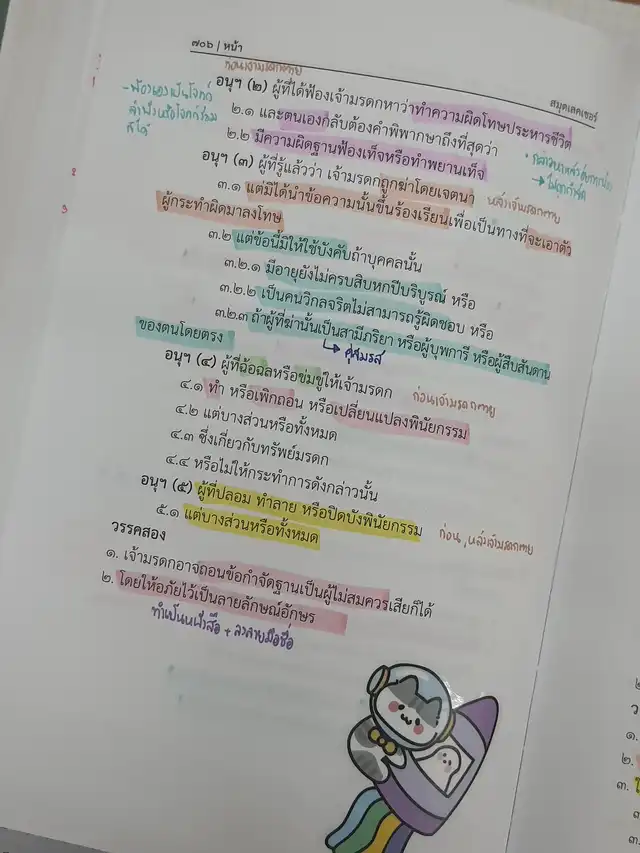 ๗๐๖ | หน้า
สมุดเลคเชอร์
ก่อนเจ้ามรดกตาย
อนุฯ (๒) ผู้ที่ได้ฟ้องเจ้ามรดกหาว่าทำความผิดโทษประหารชีวิต
๒.๑ และตนเองกลับต้องคำพิพากษาถึงที่สุดว่า
๒.๒ มีความผิดฐานฟ้องเท็จหรือทำพยานเท็จ
อนุฯ (๓) ผู้ที่รู้แล้วว่า เจ้ามรดกถูกฆ่าโดยเจตนา
หลังเจ้ามรดกตาย
๓.๑ แต่มิได้นำข้อความนั้นขึ้นร้องเรียนเพื่อเป็นทางที่จะเอาตัว
ผู้กระทำผิดมาลงโทษ
๓.๒ แต่ข้อนี้มิให้ใช้บังคับถ้าบุคคลนั้น
๓.๒.๑ มีอายุยังไม่ครบสิบหกปีบริบูรณ์ หรือ
๓.๒.๒ เป็นคนวิกลจริตไม่สามารถรู้ผิดชอบ หรือ
๓.๒.๓ ถ้าผู้ที่ฆ่านั้นเป็นสามีภริยา หรือผู้บุพการี หรือผู้สืบสันดาน
ของตนโดยตรง
คู่สมรส
อนุฯ (๔) ผู้ที่ฉ้อฉลหรือข่มขู่ให้เจ้ามรดก
ก่อนเจ้ามรดกตาย
๔.๑ ทำ หรือเพิกถอน หรือเปลี่ยนแปลงพินัยกรรม
๔.๒ แต่บางส่วนหรือทั้งหมด
๔.๓ ซึ่งเกี่ยวกับทรัพย์มรดก
๔.๔ หรือไม่ให้กระทำการดังกล่าวนั้น
อนุฯ (๕) ผู้ที่ปลอม ทำลาย หรือปิดบังพินัยกรรม
ก่อน, หลังเจ้ามรดกตาย
๕.๑ แต่บางส่วนหรือทั้งหมด
วรรคสอง
๑. เจ้ามรดกอาจถอนข้อกำจัดฐานเป็นผู้ไม่สมควรเสียก็ได้
๒. โดยให้อภัยไว้เป็นลายลักษณ์อักษร
ทำเป็นหนังสือ + ลงลายมือชื่อ